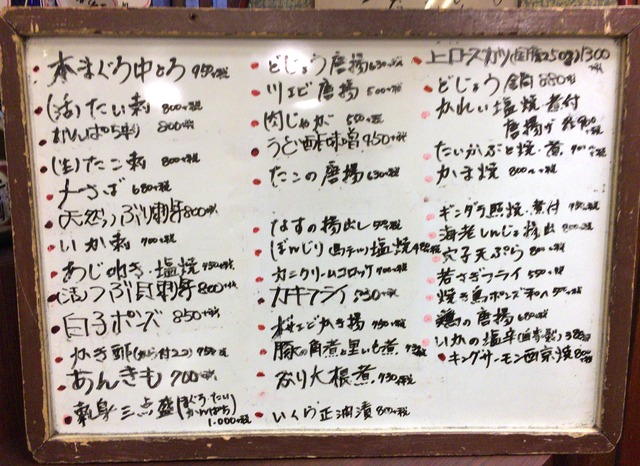 本まぐろ中とろ 950+税
(活)たい刺 800+税
かんぱち刺 800+税
(生)たこ刺 800+税
大さば 680+税
(天然)ぶり刺身 800+税
いか刺 700+税
あじ叩き・塩焼 750+税
(活)つぶ貝刺身 800+税
白子ポンズ 850+税
かき酢 750+税
あんきも 700+税
刺身三点盛(まぐろ・たい かんぱち) 1.000+税
どじょう唐揚 630+税
川エビ唐揚 500+税
肉じゃが 550+税
うど酢味噌 450+税
たこの唐揚 630+税
なすの揚出し
ぼんじり(4本)塩焼
カニクリームコロッケ 700+税
カキフライ 830+税
桜エビかき揚 750+税
豚の角煮と里いも煮
ぶり大根煮 730+税
いくら正油漬 800+税
上ロースカツ(国産250g) 1300+税
どじょう鍋 880+税
かれい塩焼・煮付
唐揚げ 各900+税
たいかぶと焼・煮 900+税
かま焼 800+税
ギンダラ照焼・煮付
海老しんじょ揚出 800+税
穴子天ぷら 800+税
若さぎフライ 550+税
焼き鳥ポンズ和へ
鶏の唐揚 680+税
いかの塩辛(自家製) 380+税
キングサーモン西京焼 800+税